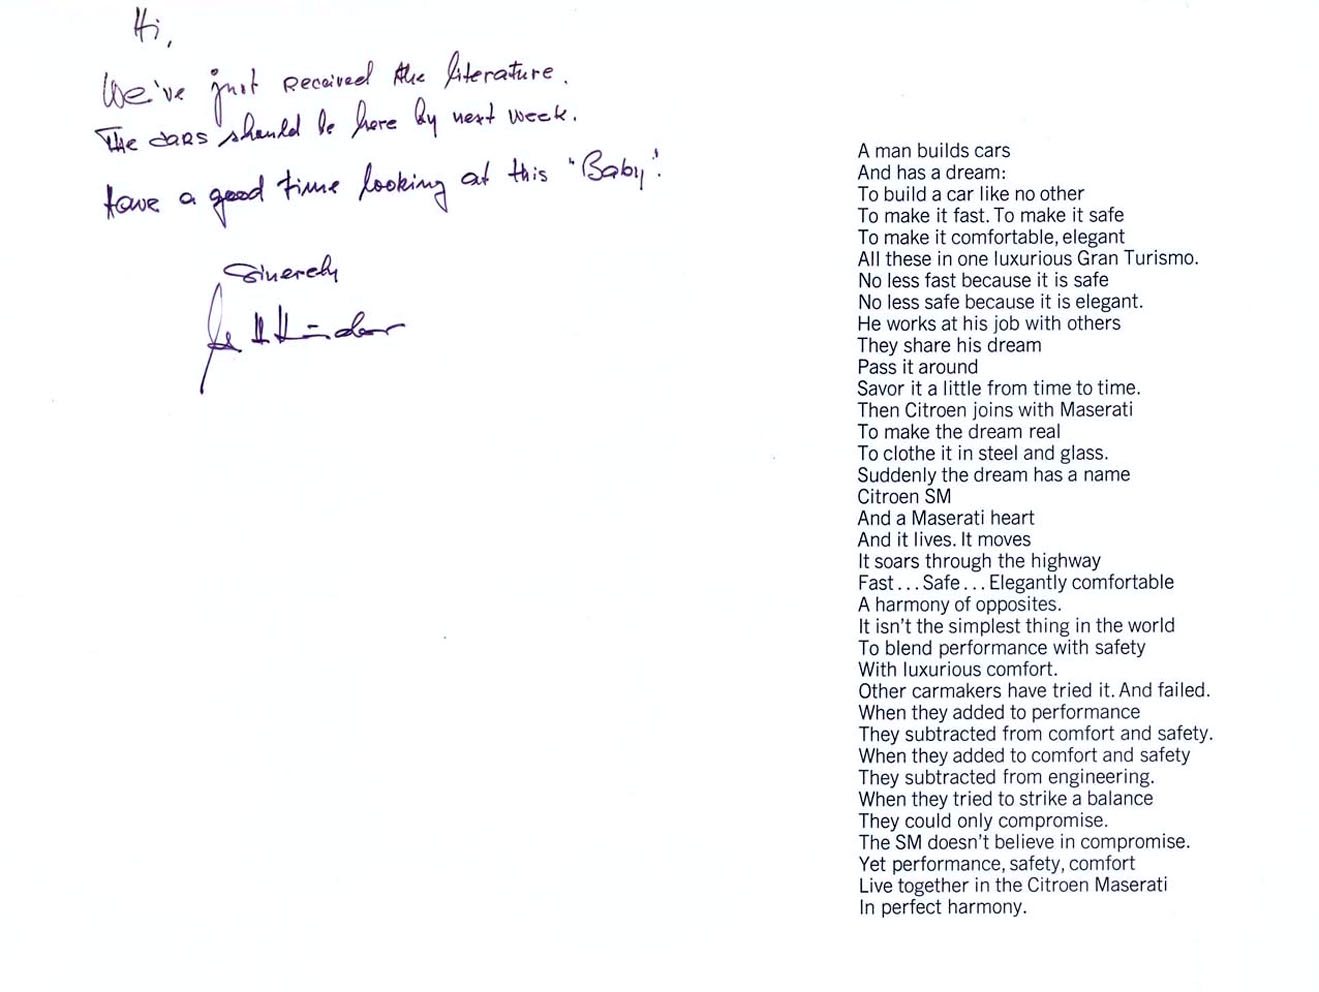 Hi,
We've just received the literature.
The cars should be here by next week.
Have a good time looking at this "Baby".
Sinerely
A man builds cars
And has a dream:
To build a car like no other
To make it fast. To make it safe
To make it comfortable, elegant
All these in one luxurious Gran Turismo.
No less fast because it is safe
No less safe because it is elegant.
He works at his job with others
They share his dream
Pass it around
Savor it a little from time to time.
Then Citroen joins with Maserati
To make the dream real
To clothe it in steel and glass.
Suddenly the dream has a name
Citroen SM
And a Maserati heart
And it lives. It moves
It soars through the highway
Fast... Safe... Elegantly comfortable
A harmony of opposites.
It isn't the simplest thing in the world
To blend performance with safety
With luxurious comfort.
Other carmakers have tried it. And failed.
When they added to performance
They subtracted from comfort and safety.
When they added to comfort and safety
They subtracted from engineering.
When they tried to strike a balance
They could only compromise.
The SM doesn't believe in compromise.
Yet performance, safety, comfort
Live together in the Citroen Maserati
In perfect harmony.